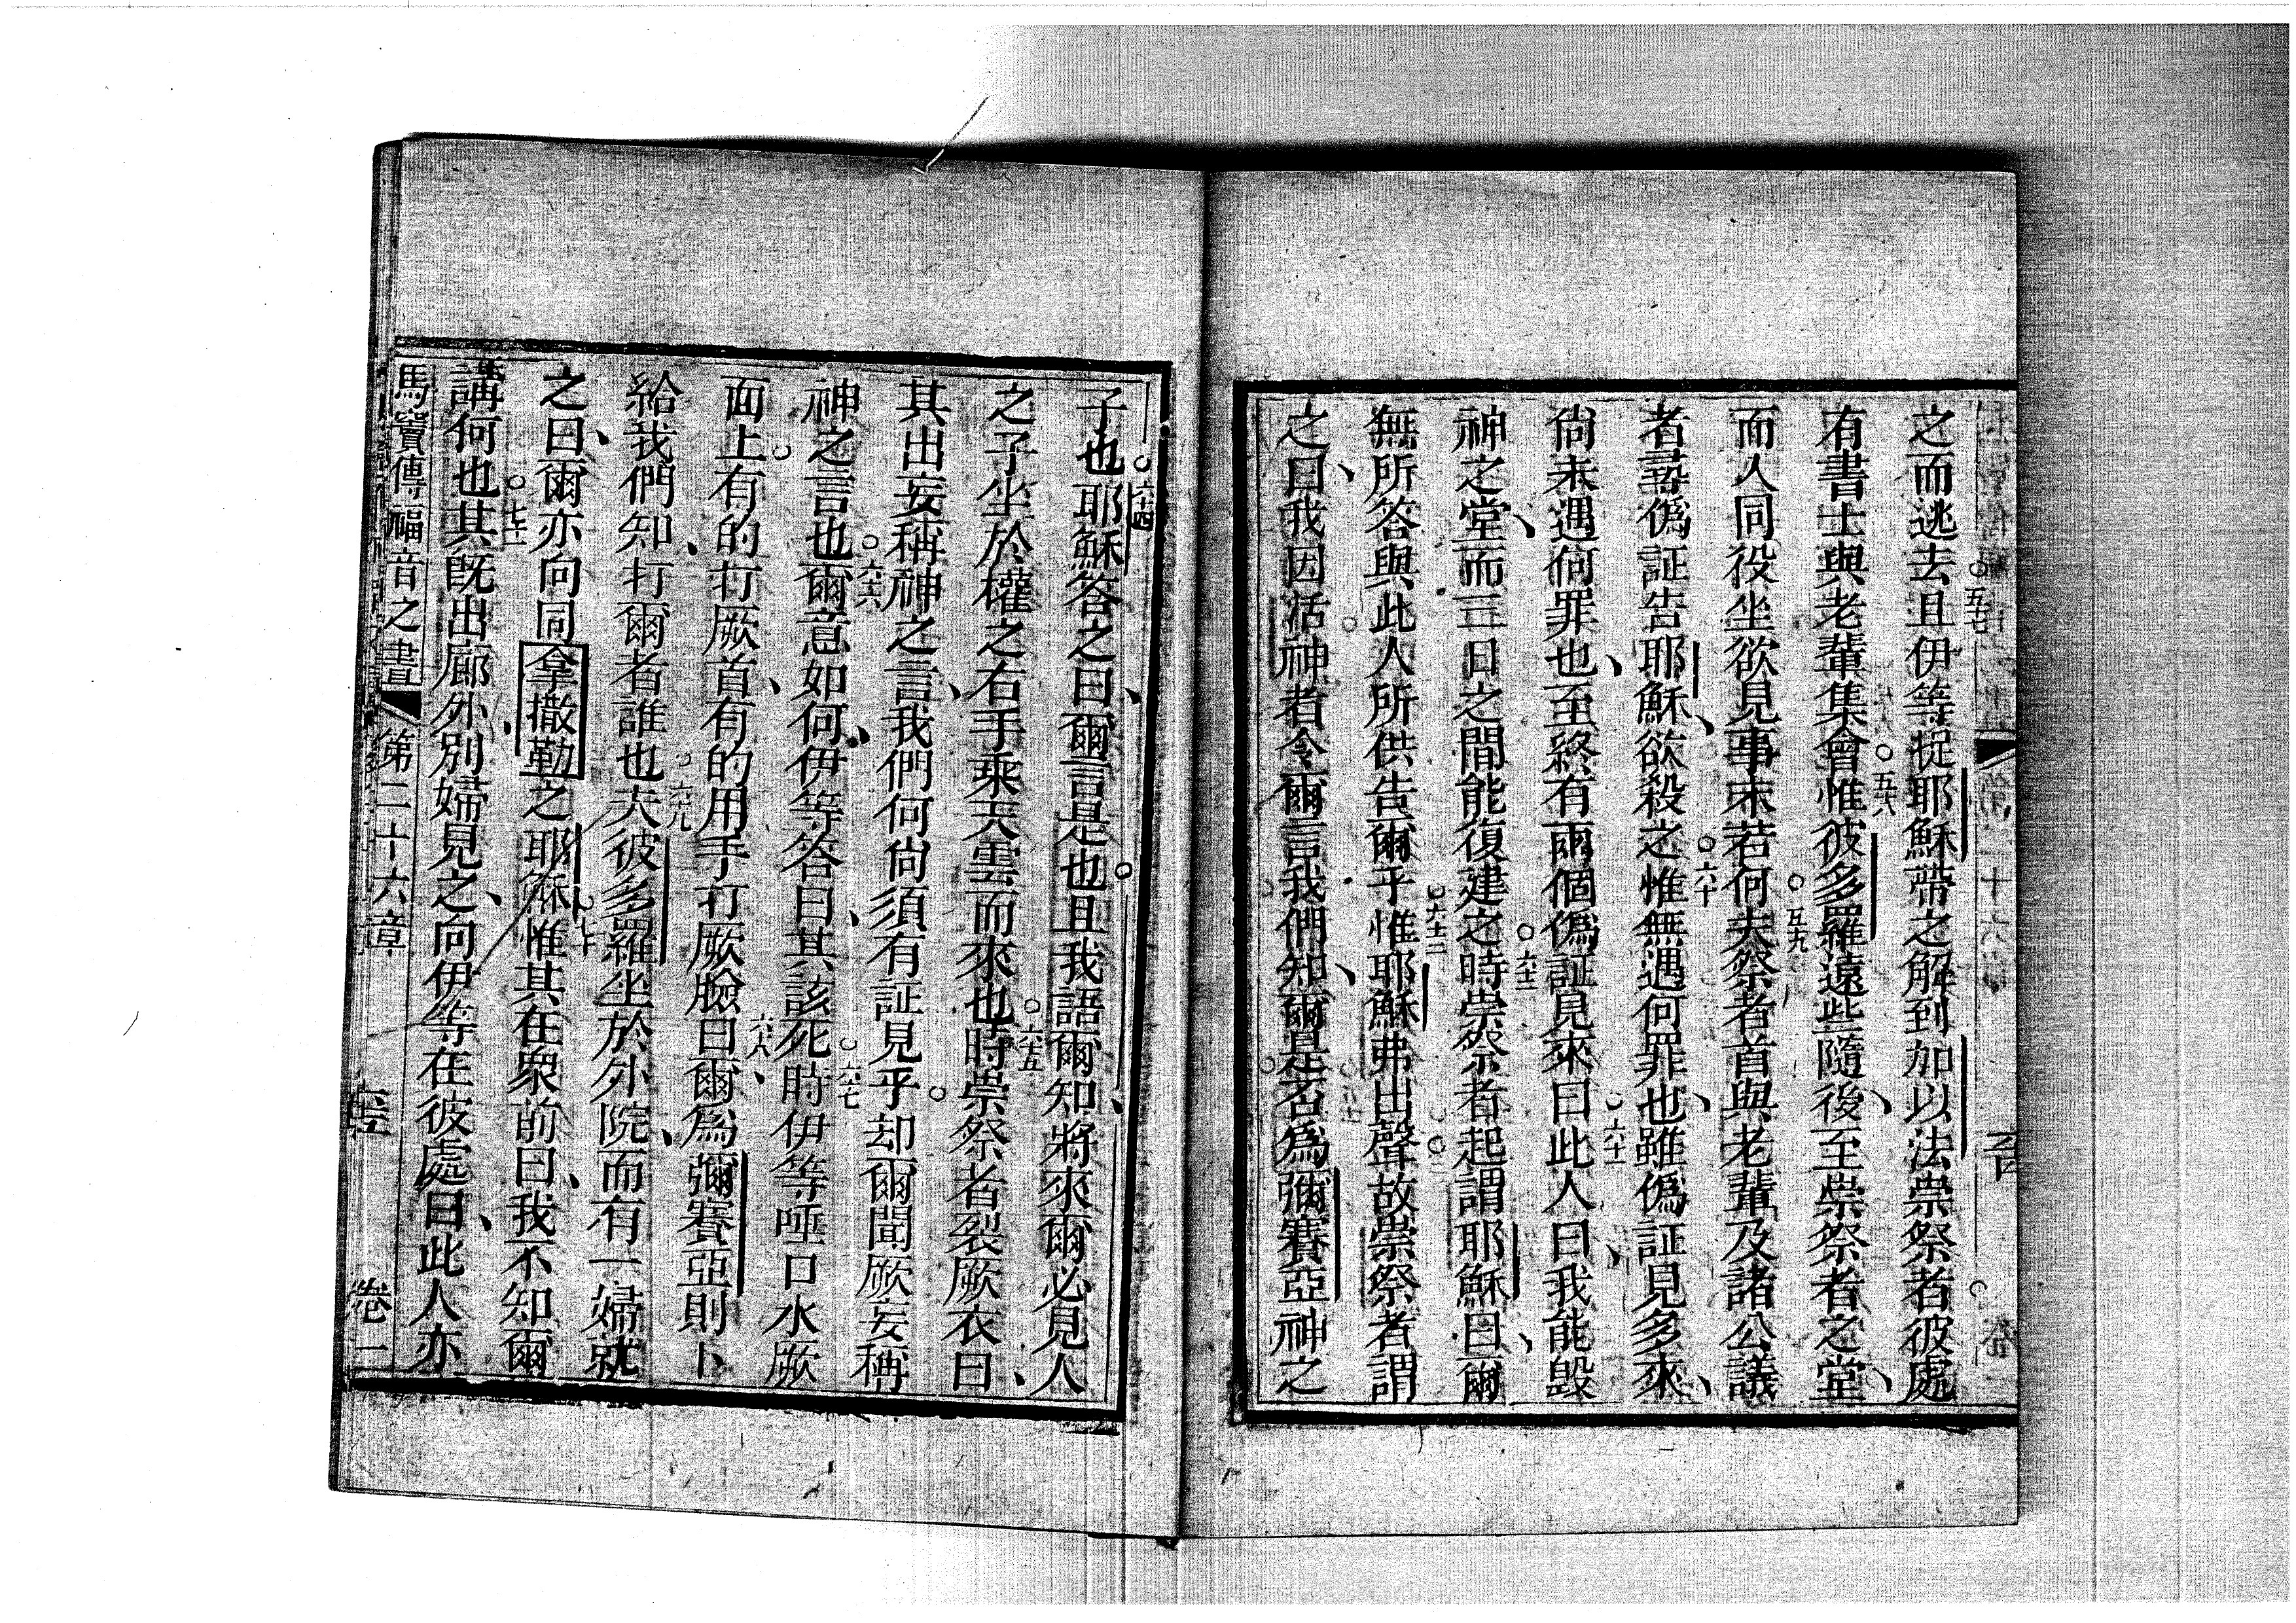 之而逃去且伊等捉耶穌帶之解到加以法祟祭者彼處
有書士與老輩集會惟彼多羅遠些隨後至祟祭者之堂
而人同役坐欲見事末若何夫祭者首與老輩及諸公議
者尋偽証告耶穌欲殺之惟無遇何罪也雖偽証見多來
尚未遇何罪也至終有兩個偽証見來曰此人曰我能毀
神之堂而三日之間能復建之時崇祭者起謂耶穌曰爾
無所答與此人所供告爾乎惟耶穌弗出聲故崇祭者謂
之曰我因活神者令爾言我們知爾是否為彌賽亞神之
子也耶穌答之曰爾言是也且我語爾知將來爾必見人
之子坐於權之右手乘天雲而來也時崇祭者裂厥衣曰
其出妄稱神之言我們何尚須有証見乎却爾聞厥妄稱
神之言也爾意如何伊等答曰其該死時伊等唾口水厥
面上有的打厥首有的用手打厥臉曰爾為彌賽亞則卜
給我們知打爾者誰也夫彼多羅坐於外院而有一婦就
之曰爾亦向同拿撒勒之耶穌惟其在眾前曰我不知爾
講何也其既出廊外別婦見之向伊等在彼處曰此人亦
馬竇傳福音之書 第二十六章 卷一